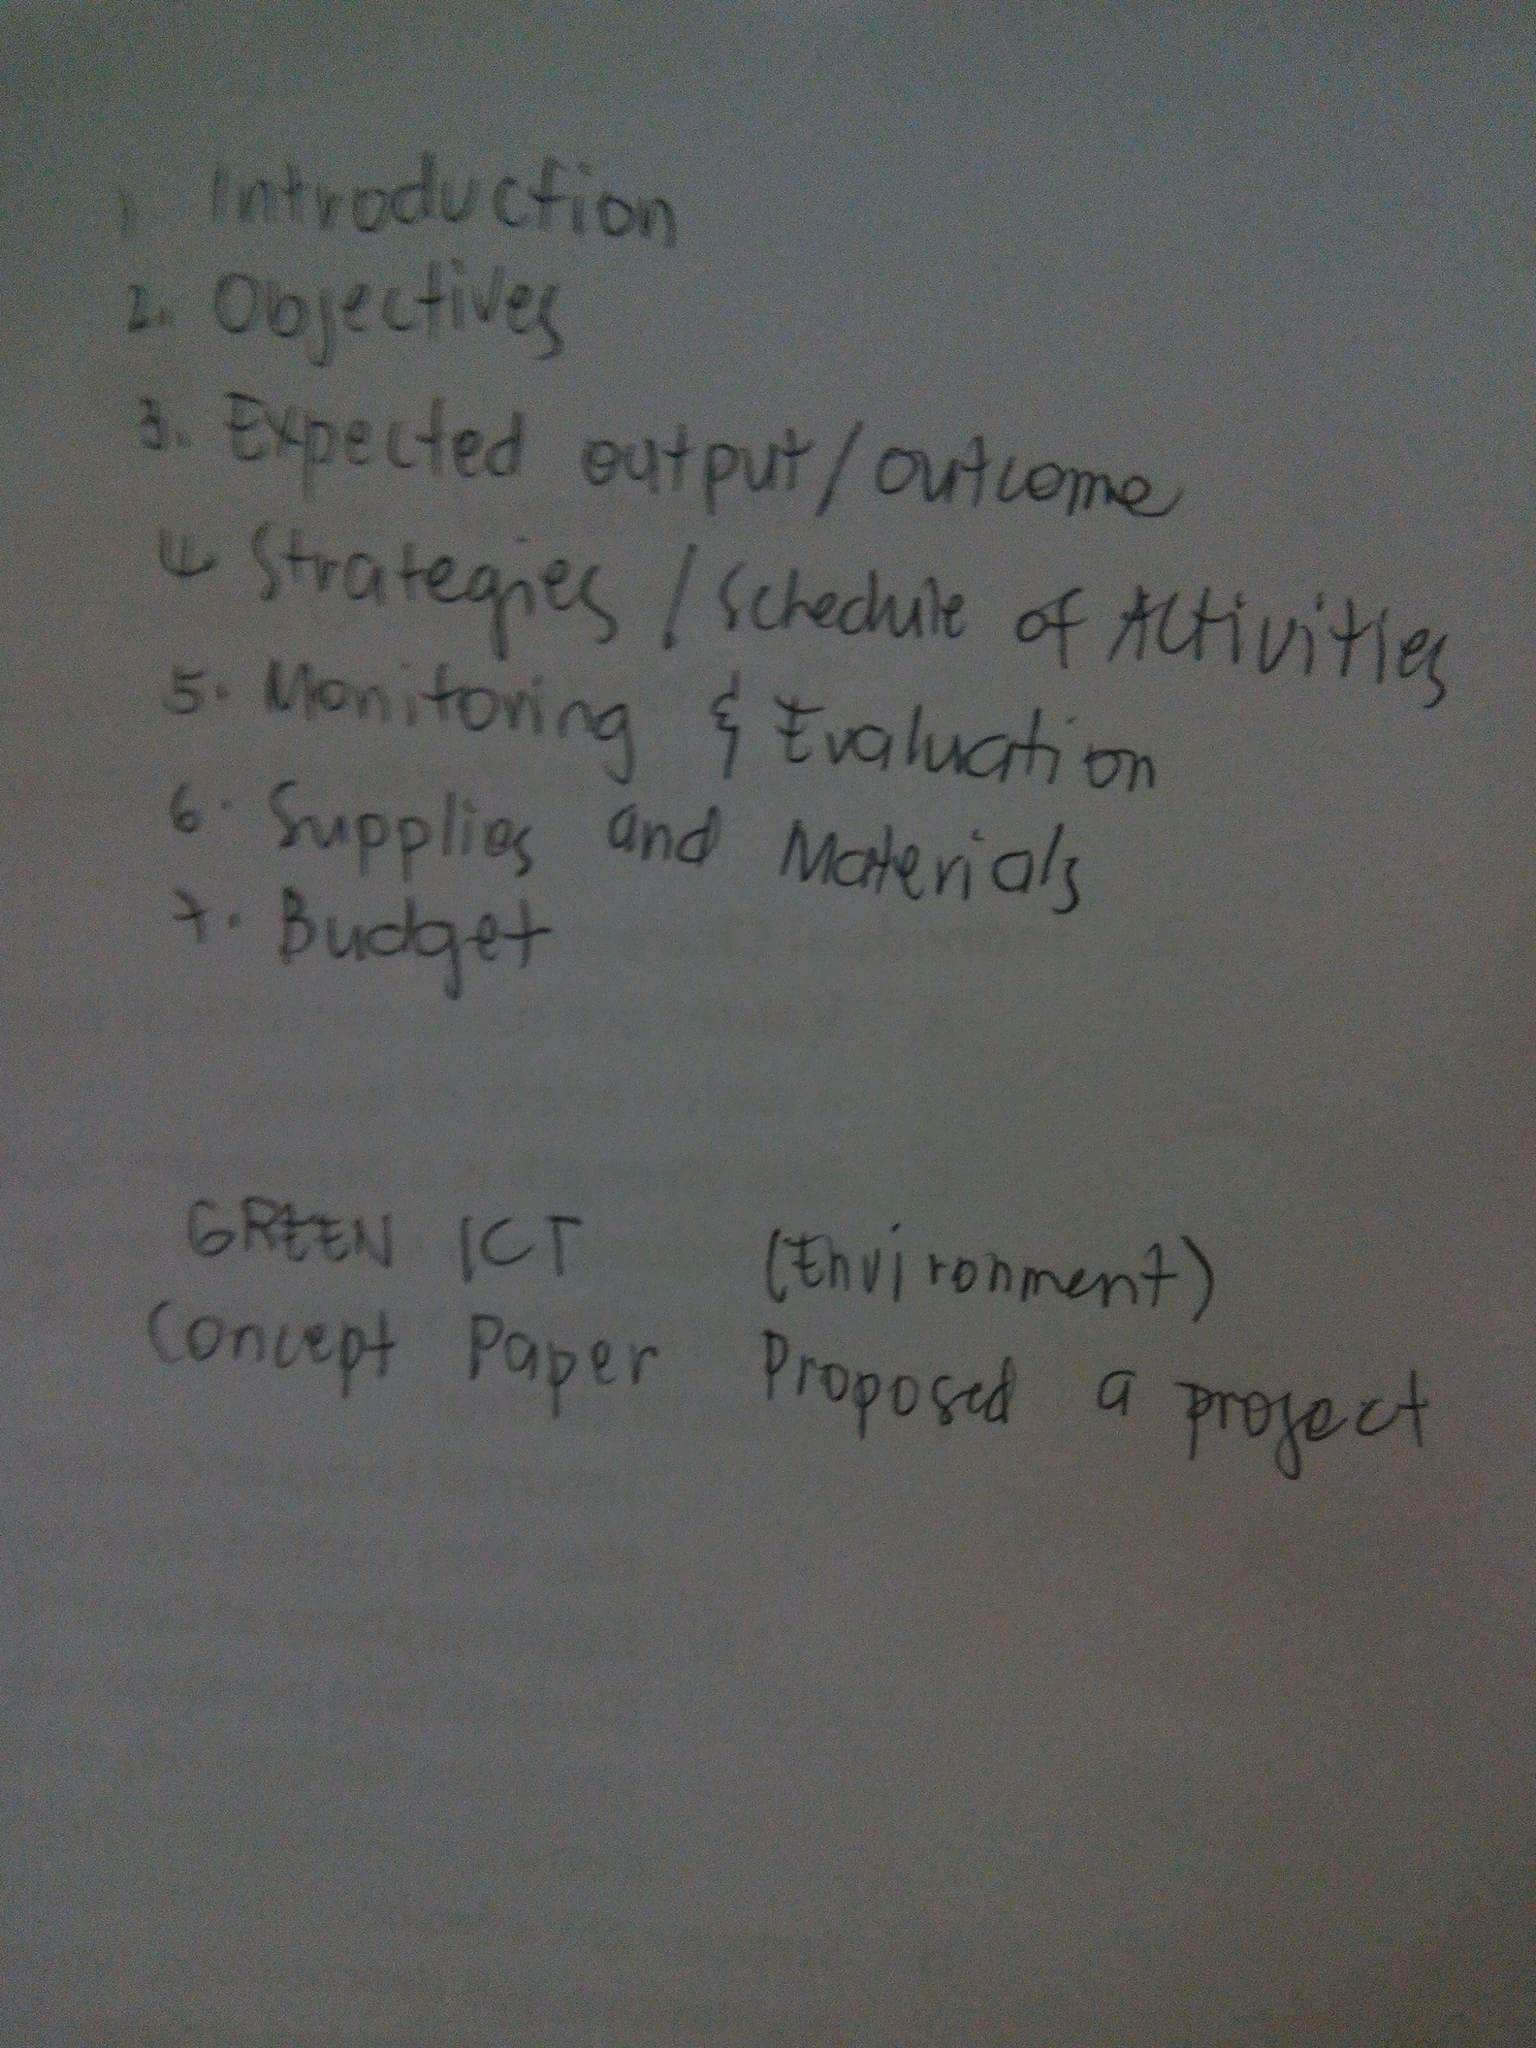 1. Introduction
2. Objectives
3. Expected output/outcome
4 Strategies / Schedule of Activities
5. Monitoring & Evaluation
6. Supplies and Materials
7. Budget
GREEN ICT (Environment)
Concept Paper Proposed a project